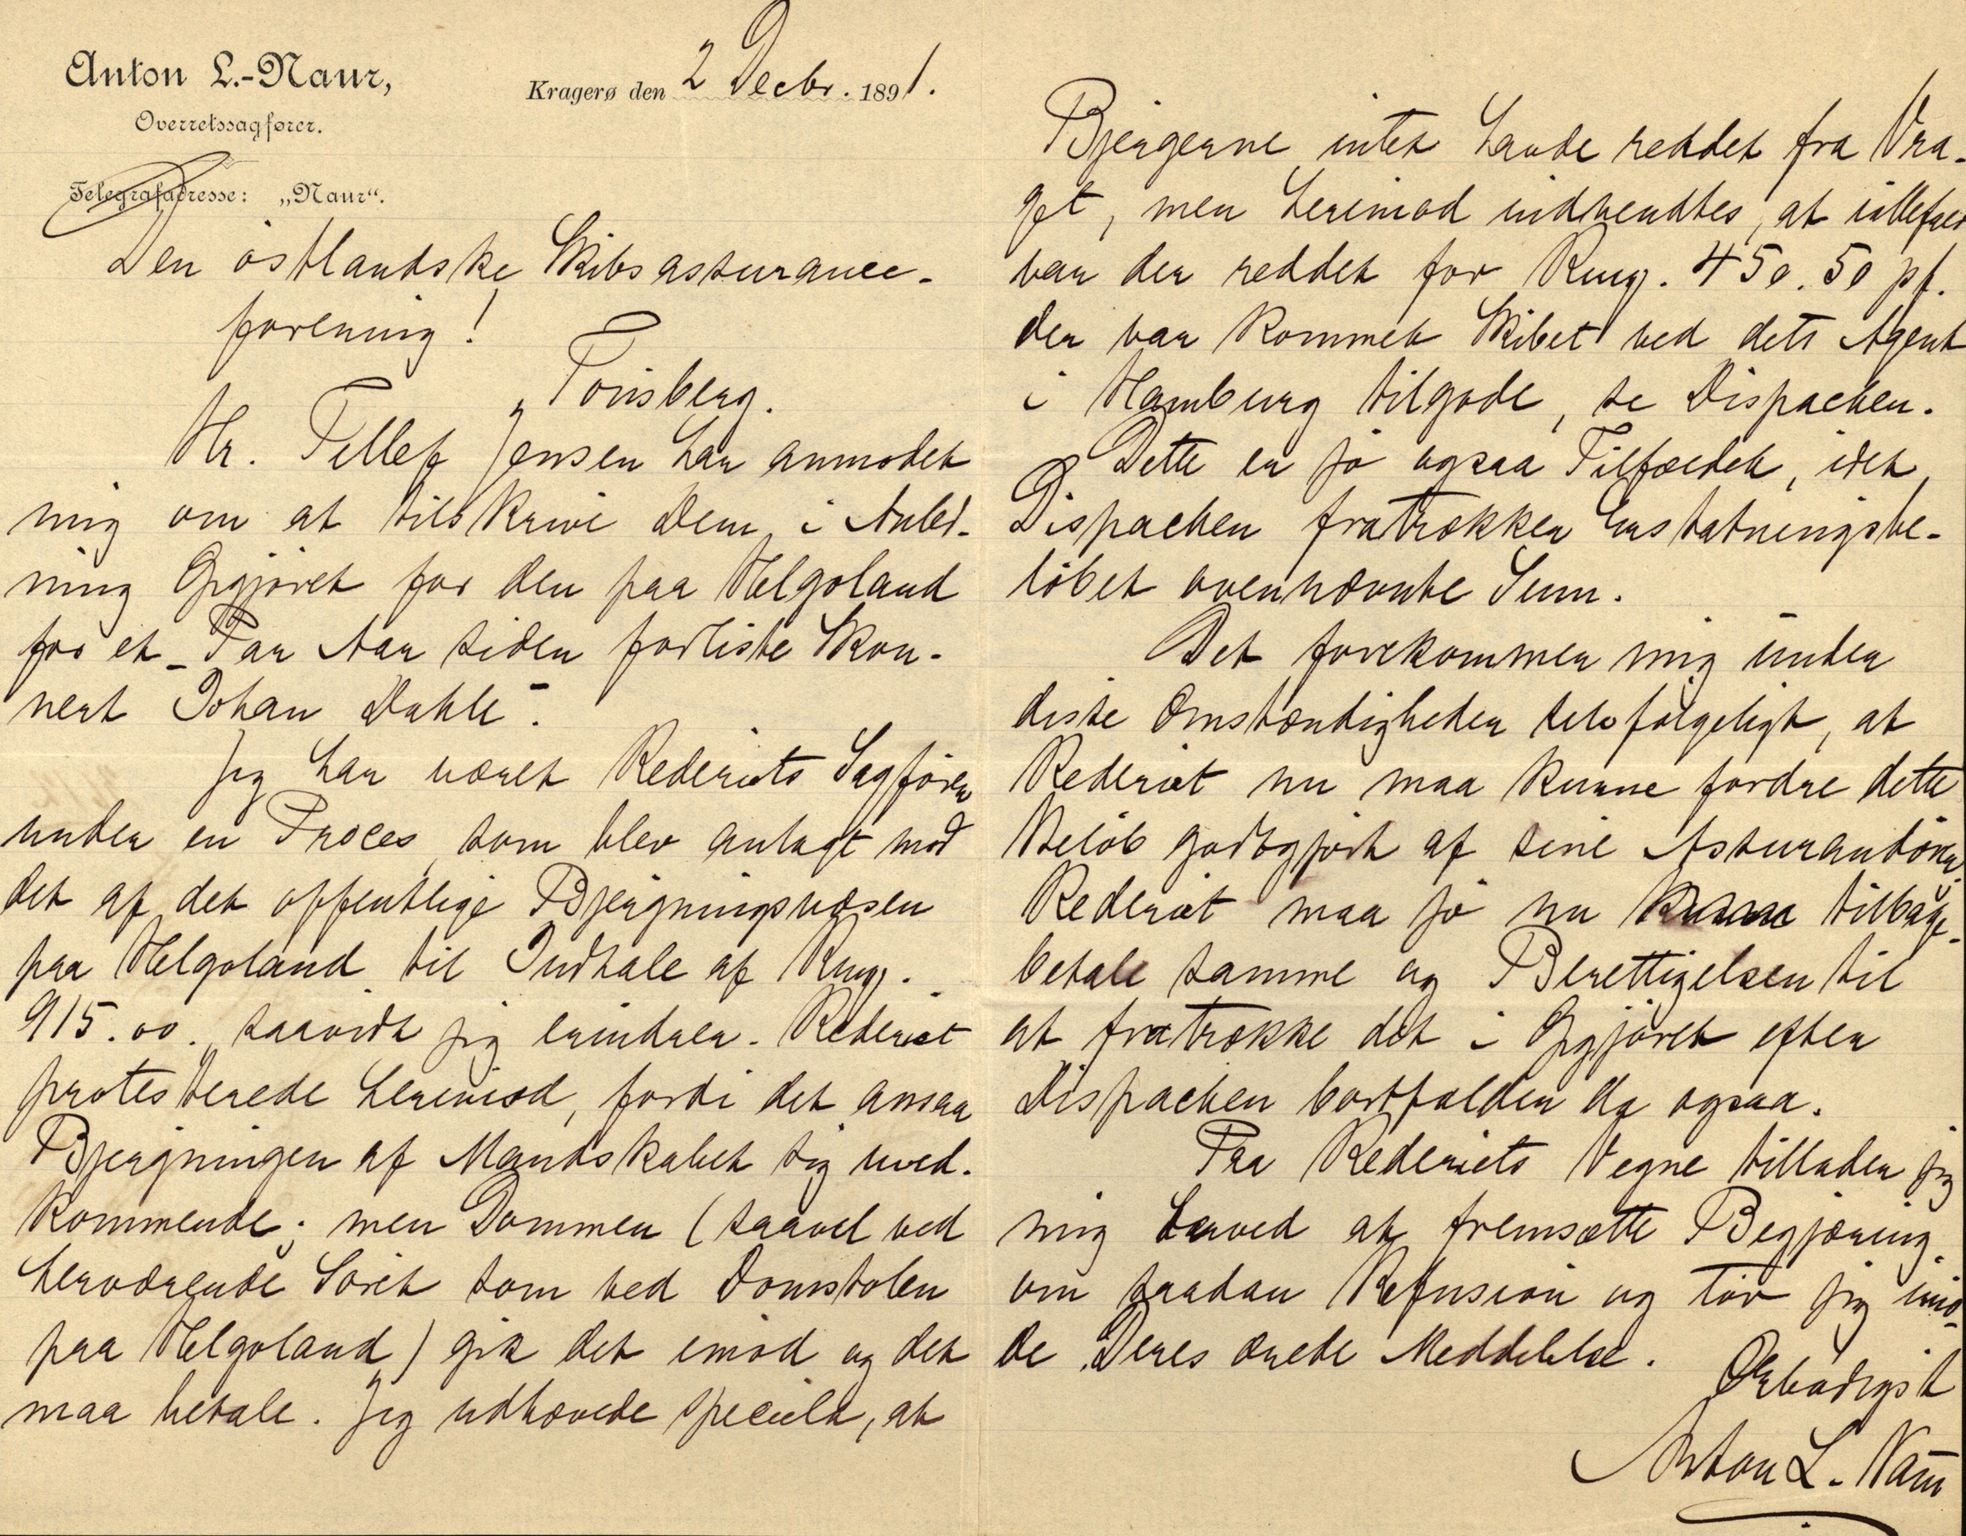 Anton L.-Naur,
Overretssagfører.
Telegrafadresse: „Naur“.
Kragerø den 2 Decbr. 1891.
Den östlandske Skibsassurance-
forening!
Tönsberg.
Hr. Tellef Jensen har anmodet
mig om at tilskrive Dem i Anled-
ning Opgjöret for den paa Helgoland
for et Par Aar siden forliste Skon-
nert Johan Dahll.
Jeg har været Rederiets Sagförer
under en Proces, som blev anlagt mod
det af det offentlige Bjergningsvæsen
paa Helgoland til Indtale af Rmg.
915.00. saavidt jeg erindrer. Rederiet
protesterede herimod, fordi det ansaa
Bjergningen af Mandskabet sig uved-
kommende; men Dommen (saavel ved
herværende Söret som ved Domstolen
paa Helgoland) gik det imod og det
maa betale. Jeg udhævede specielt, at
Bjergerne intet havde reddet fra Vra-
get, men herimod indvendtes, at iallefald
var der reddet for Rmg. 450.50 pf.
der var kommet Skibet ved dets Agent
i Hamburg tilgode, se Dispachen.
Dette er jo ogsaa Tilfældet, idet
Dispachen fratrækker Erstatningsbe-
löbet ovennævnte Sum.
Det forekommer mig under
disse Omstændigheder selvfølgeligt, at
Rederiet nu maa kunne fordre dette
Belöb godtgjort af sine Assurandörer.
Rederiet maa jo nu tilbage-
betale samme og Berettigelsen til
at fratrække det i Opgjöret efter
Dispachen bortfalder da ogsaa.
Paa Rederiets Vegne tillader jeg
mig herved at fremsætte Begjæring
om saadan Refusion og tör jeg imö-
de Deres ærede Meddelelse.
Ærbødigst
Anton L. Naur